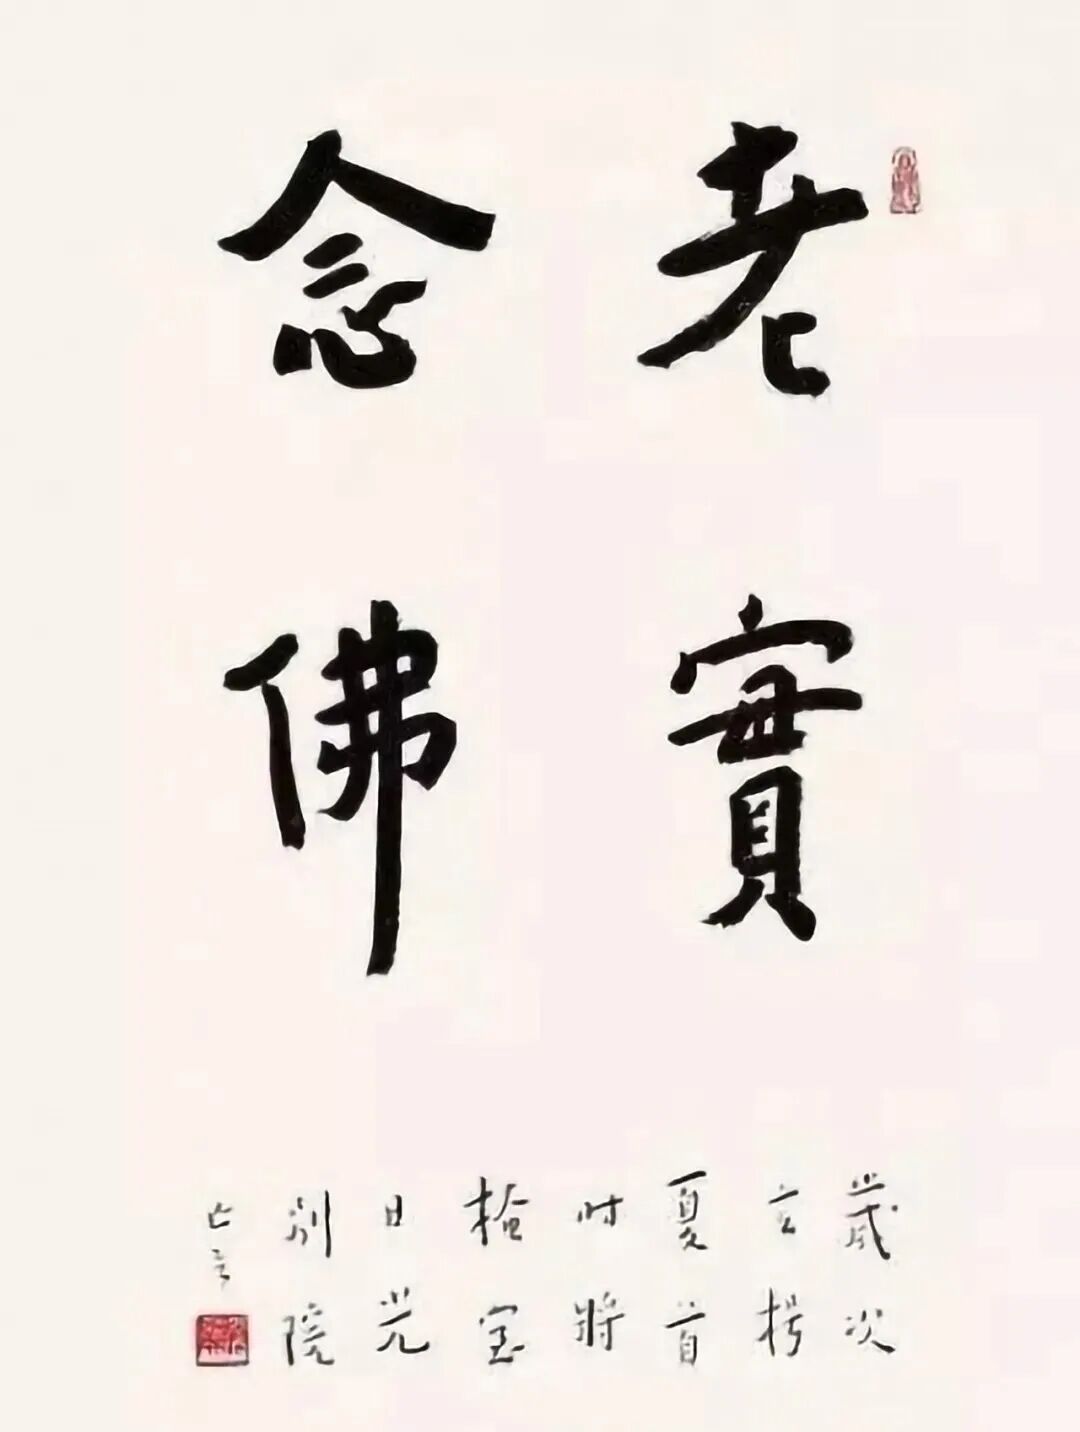 老實
念佛
歲次
玄枵
夏首
時將
檜宝
日光
別院
亡言